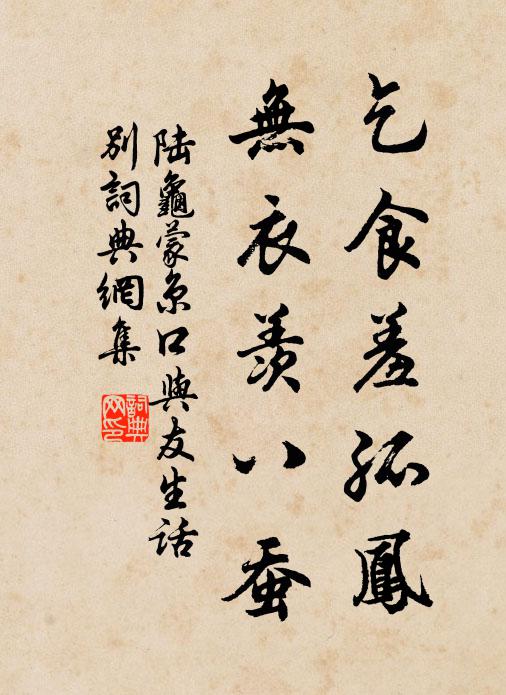 乞食羞孤鳳
無衣羨八蚕
陸龜蒙京口與友生話
別詞典網集
詞典
网印